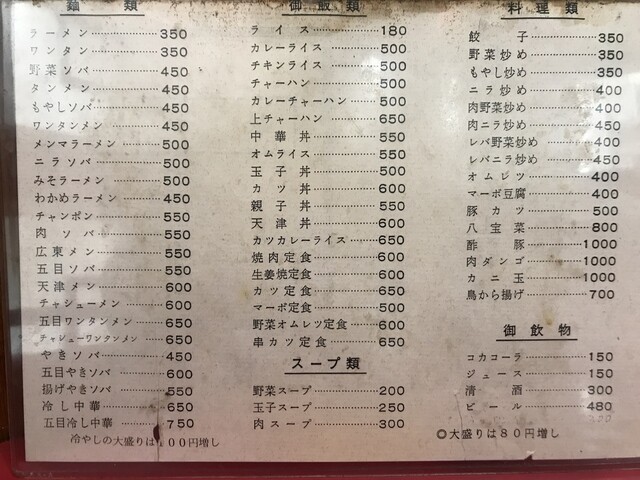 麺類
ラーメン 350
ワンタン 350
野菜ソバ 450
タンメン 450
もやしソバ 450
ワンタンメン 450
メンマラーメン 500
ニラソバ 500
みそラーメン 500
わかめラーメン 450
チャンポン 550
肉ソバ 550
広東メン 550
五目ソバ 550
天津メン 600
チャシューメン 600
五目ワンタンメン 650
チャシューワンタンメン 650
やきソバ 450
五目やきソバ 600
揚げやきソバ 550
冷し中華 650
五目冷し中華 750
冷やしの大盛りは100円増し
御飯類
ライス 180
カレーライス 500
チキンライス 500
チャーハン 500
カレーチャーハン 500
上チャーハン 650
中華丼 550
オムライス 550
玉子丼 500
カツ丼 600
親子丼 550
天津丼 600
カツカレーライス 650
焼肉定食 600
生姜焼定食 600
カツ定食 650
マーボ定食 500
野菜オムレツ定食 600
串カツ定食 650
スープ類
野菜スープ 200
玉子スープ 250
肉スープ 300
料理類
餃子 350
野菜炒め 350
もやし炒め 350
ニラ炒め 400
肉野菜炒め 400
肉ニラ炒め 450
レバ野菜炒め 400
レバニラ炒め 450
オムレツ 400
マーボ豆腐 400
豚カツ 500
八宝菜 800
酢豚 1000
肉ダンゴ 1000
カニ玉 1000
鳥から揚げ 700
御飲物
コカコーラ 150
ジュース 150
清酒 300
ビール 480
◎大盛りは80円増し